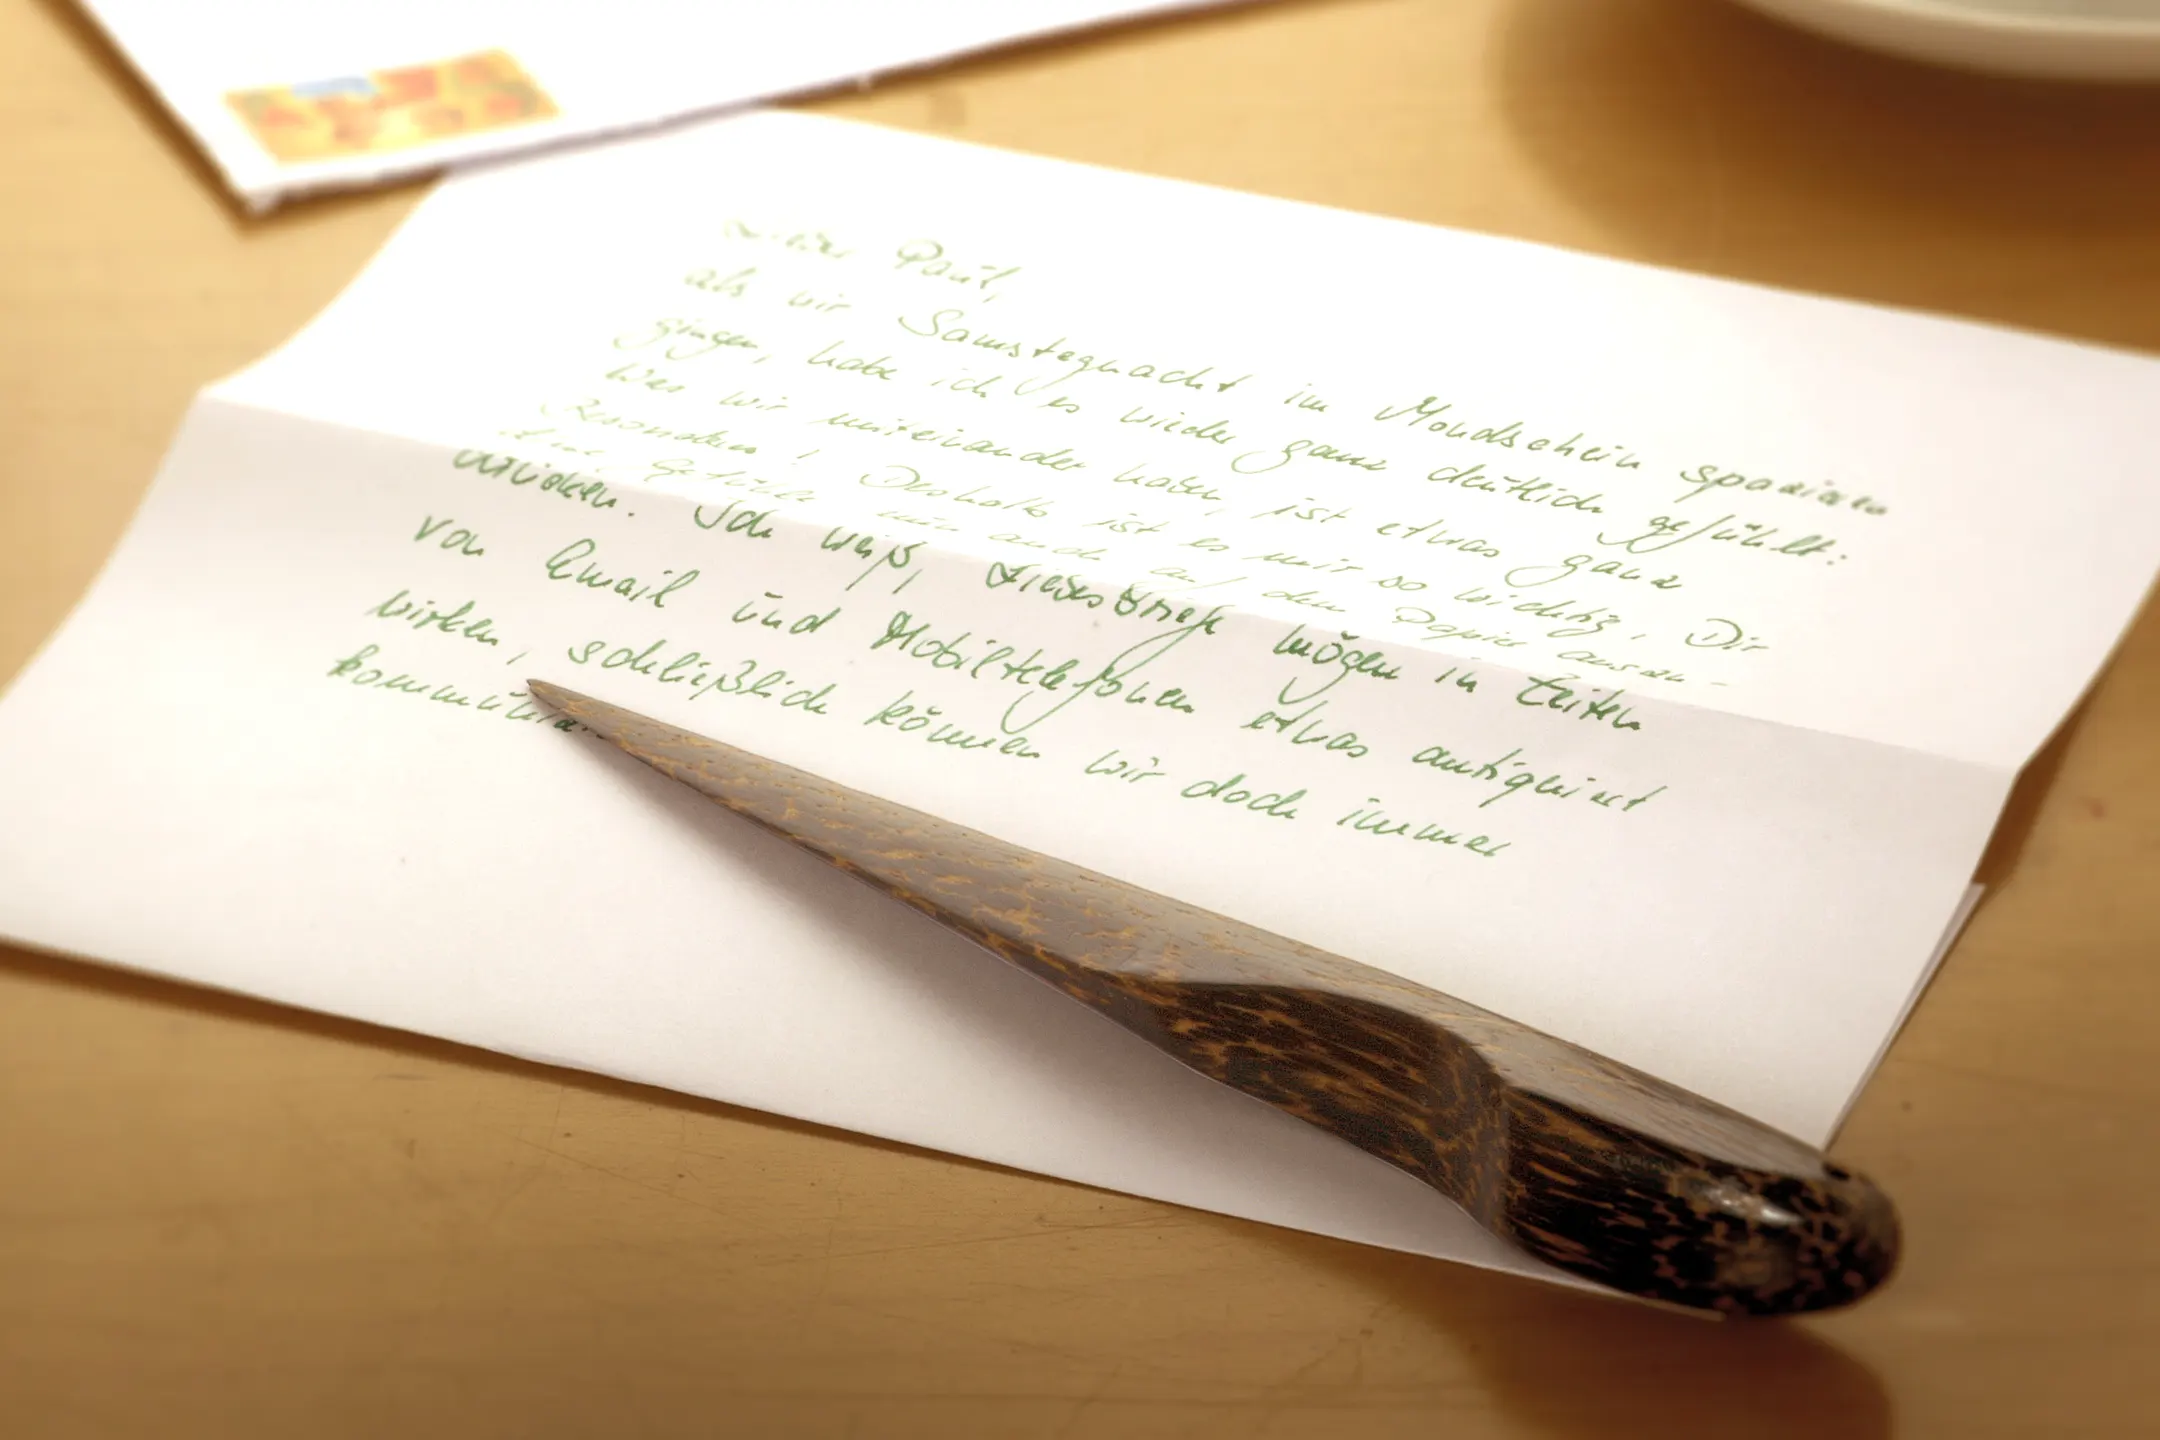 Paul,
als wir Samstagnacht im Mondschein spazieren
gingen, habe ich es wieder ganz deutlich gefühlt:
Was wir miteinander haben, ist etwas ganz
Besonderes! Deshalb ist es mir so wichtig, Dir
Gefühle auch auf dem Papier auszu-
drücken. Ich weiß, Liebesbriefe mögen in Zeiten
von Email und Mobiltelefonen etwas antiquiert
wirken, schließlich können wir doch immer